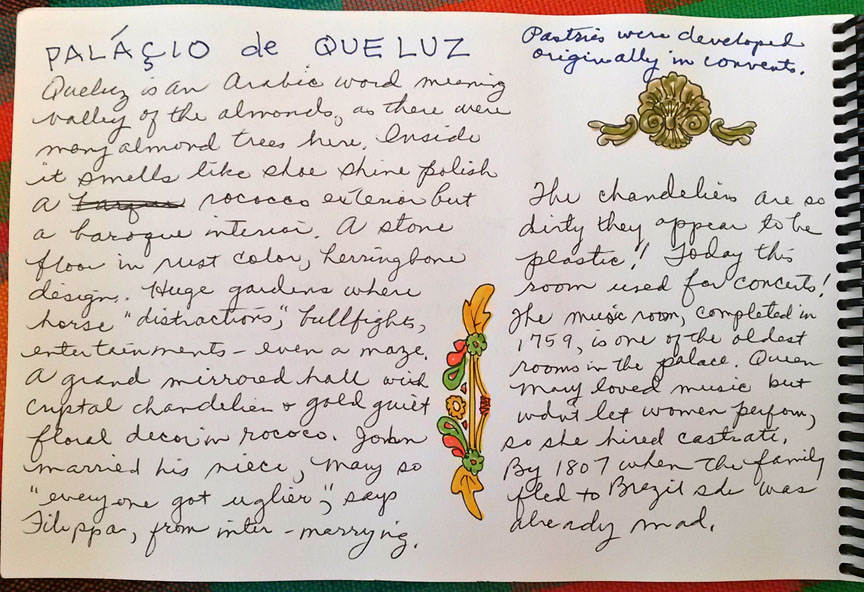 PALÁÇIO de QUELUZ
Queluz is an Arabic word meaning
valley of the almonds, as there were
many almond trees here. Inside
it smells like shoe shine polish
a rococco exterior but
a baroque interior. A stone
floor in rust color, herringbone
design. Huge gardens where
horse "distractions," bullfights,
entertainments - even a maze.
A grand mirrored hall with
crystal chandelier & gold guilt
floral decor in rococo. John
married his niece, Mary so
"everyone got uglier," says
Filippa, from inter-marrying.
Pastries were developed
originally in convents.
The chandeliers are so
dirty they appear to be
plastic! Today this
room used for concerts!
The music room, completed in
1759, is one of the oldest
rooms in the palace. Queen
Mary loved music but
wdn't let women perform,
so she hired castrati.
By 1807 when the family
fled to Brazil she was
already mad.